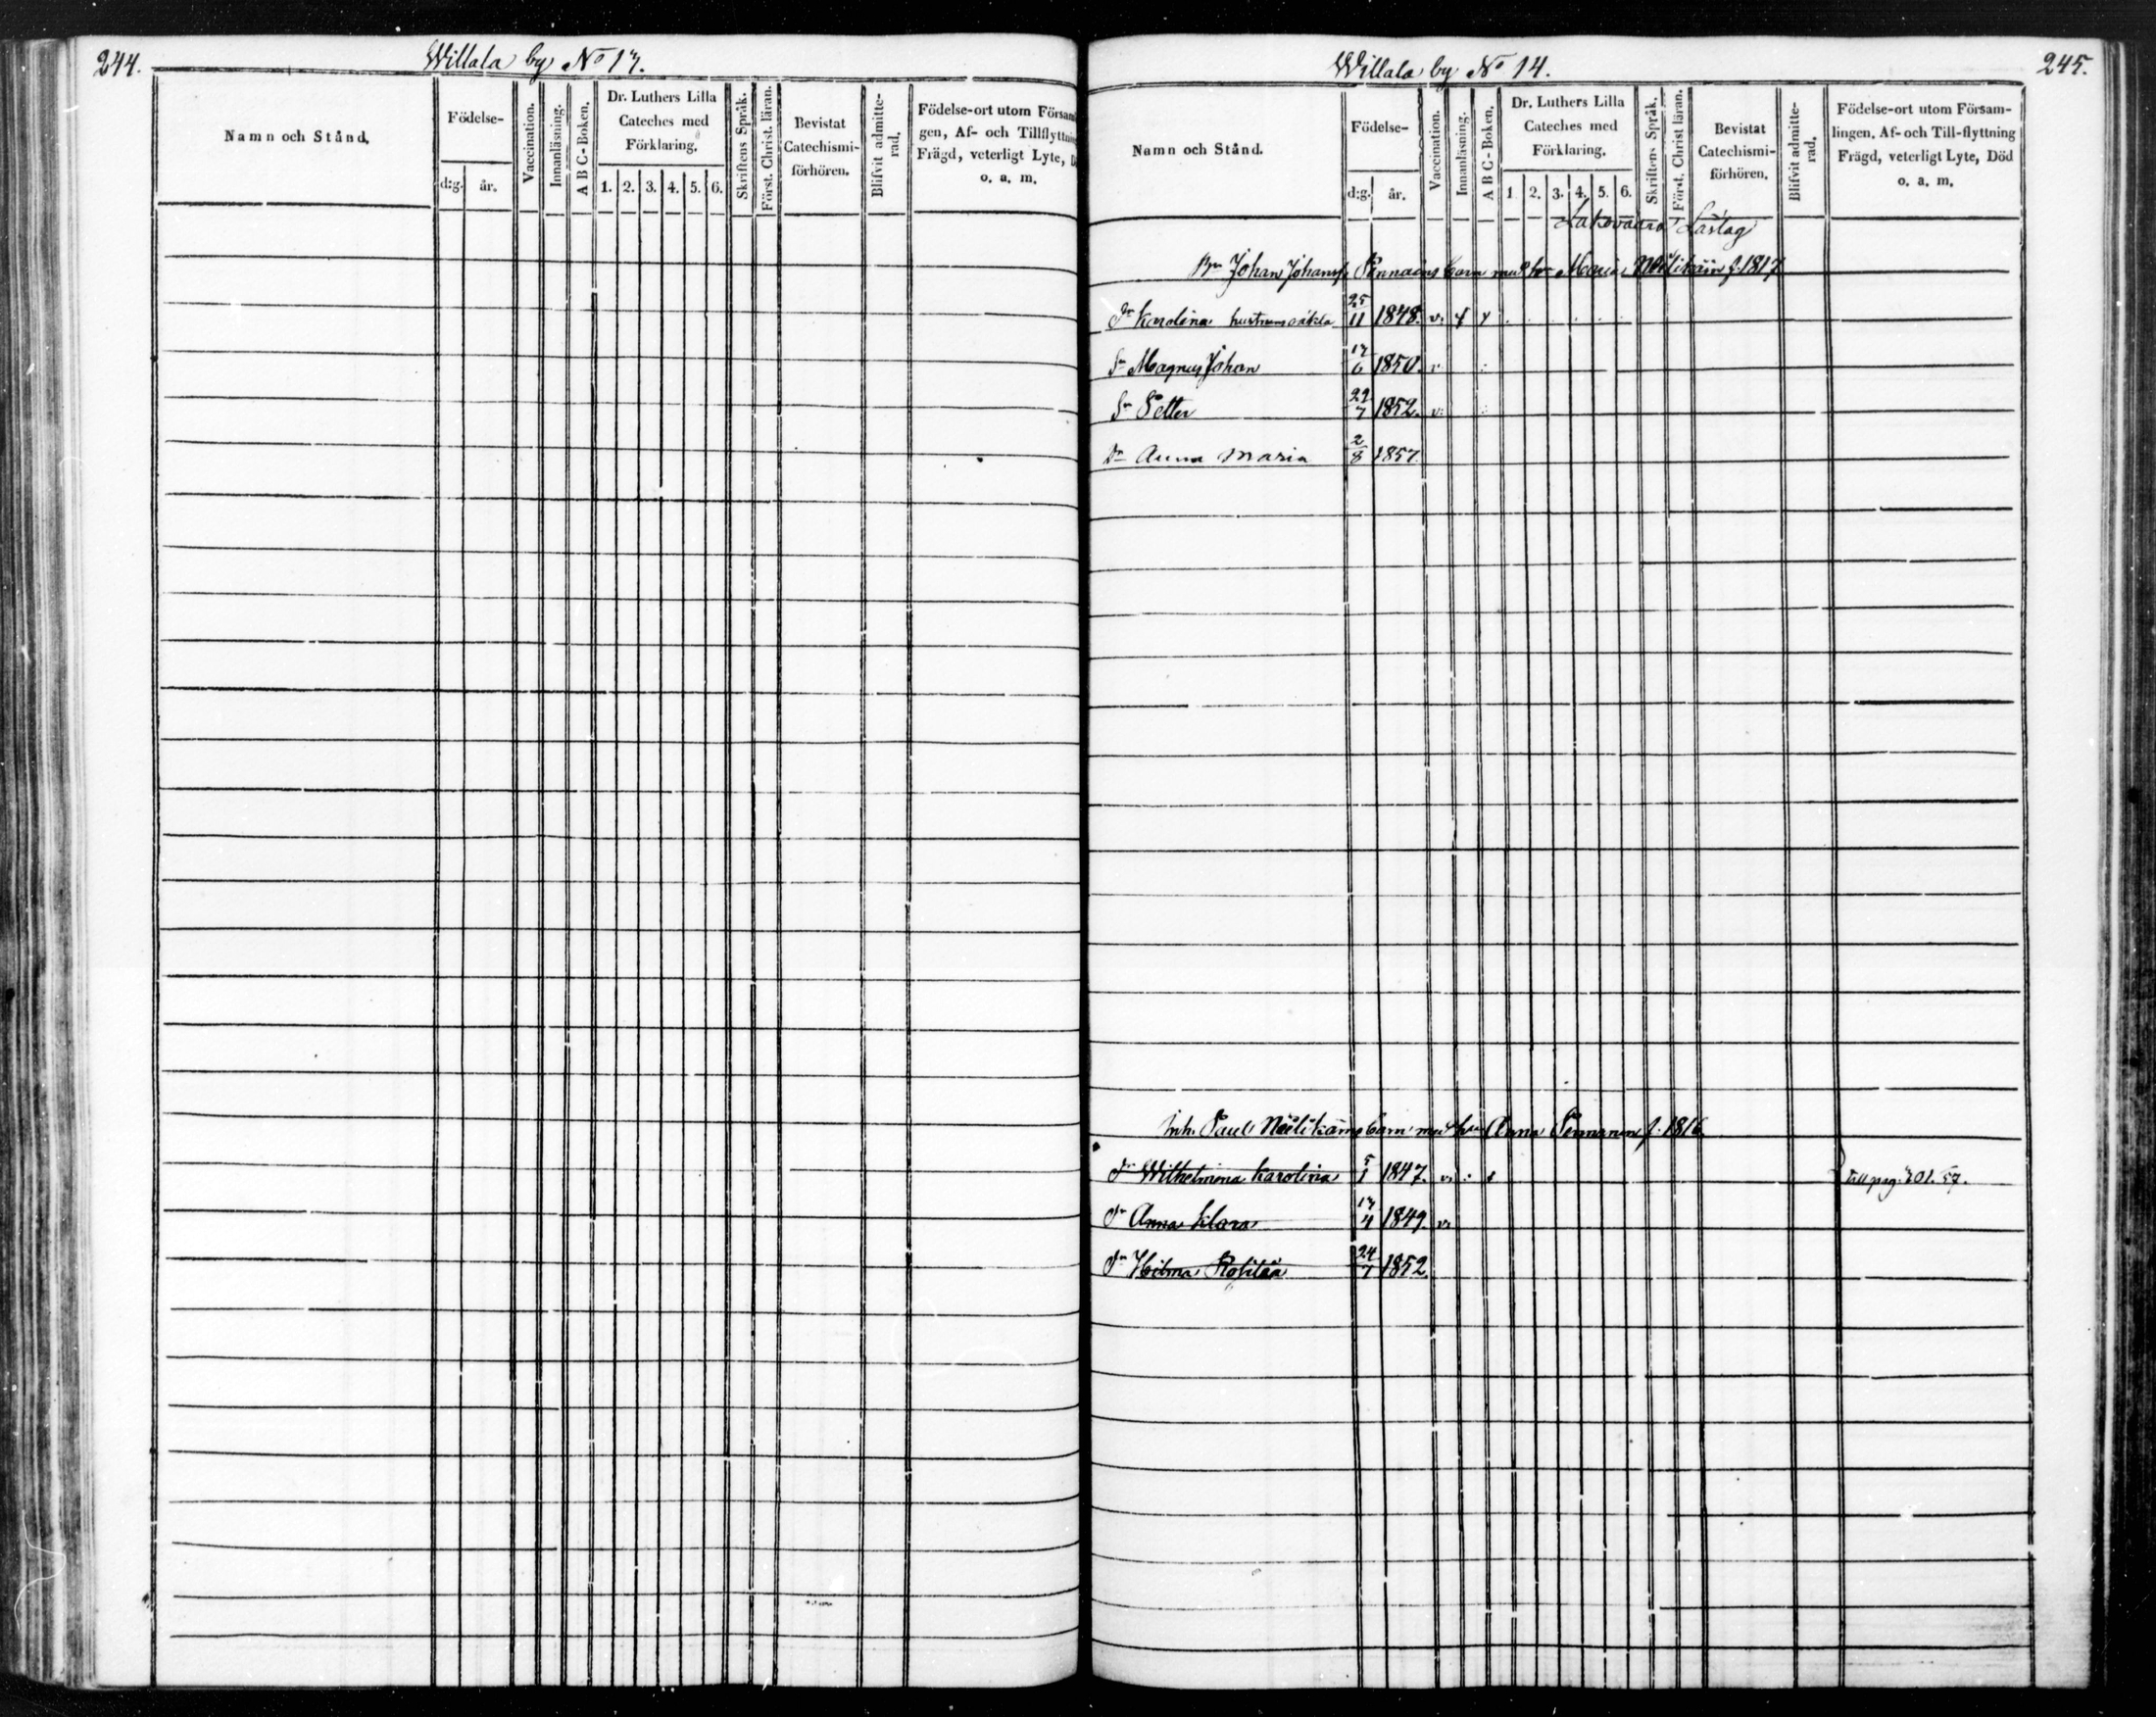 244.
Willala by No 13.
Namn och Stånd.
Födelse-
d:g.
år.
Vaccination.
Innanläsning.
A B C-Boken.
Dr. Luthers Lilla
Cateches med
Förklaring.
1. 2. 3. 4. 5. 6.
Skriftens Språk.
Först. Christ. läran.
Bevistat
Catechismi-
förhören.
Blifvit admitte-
rad.
Födelse-ort utom Försam
gen, Af- och Tillflyttnin
Frägd, veterligt Lyte, D
o. a. m.
Willala by No 14.
245.
Namn och Stånd.
Födelse-
d:g.
år.
Vaccination.
Innanläsning.
A B C-Boken.
Dr. Luthers Lilla
Cateches med
Förklaring.
1. 2. 3. 4. 5. 6.
Skriftens Språk.
Först. Christ läran.
Bevistat
Catechismi-
förhören.
Blifvit admitte-
rad.
Födelse-ort utom Försam-
lingen, Af- och Till-flyttning
Frägd, veterligt Lyte, Död
o. a. m.
Lakovaara Läslag
Bn Johan Johanss Pennains barn med h Maria Nälikäin f. 1817
dr Karolina hustruns oäkta 25/11 1848. v.
Sn Magnus Johan 17/6 1850. v.
Sn Petter 29/7 1852. v.
Dr Anna Maria 2/8 1857.
Inh. Paul Nälikäins barn med hu Anna Pennanen f. 1816.
dr Wilhelmina Karolina 5/1 1847. v. till pag. 201. 57.
dr Anna Klara 17/4 1849 v.
dr Hilma Rositaa 24/7 1852.